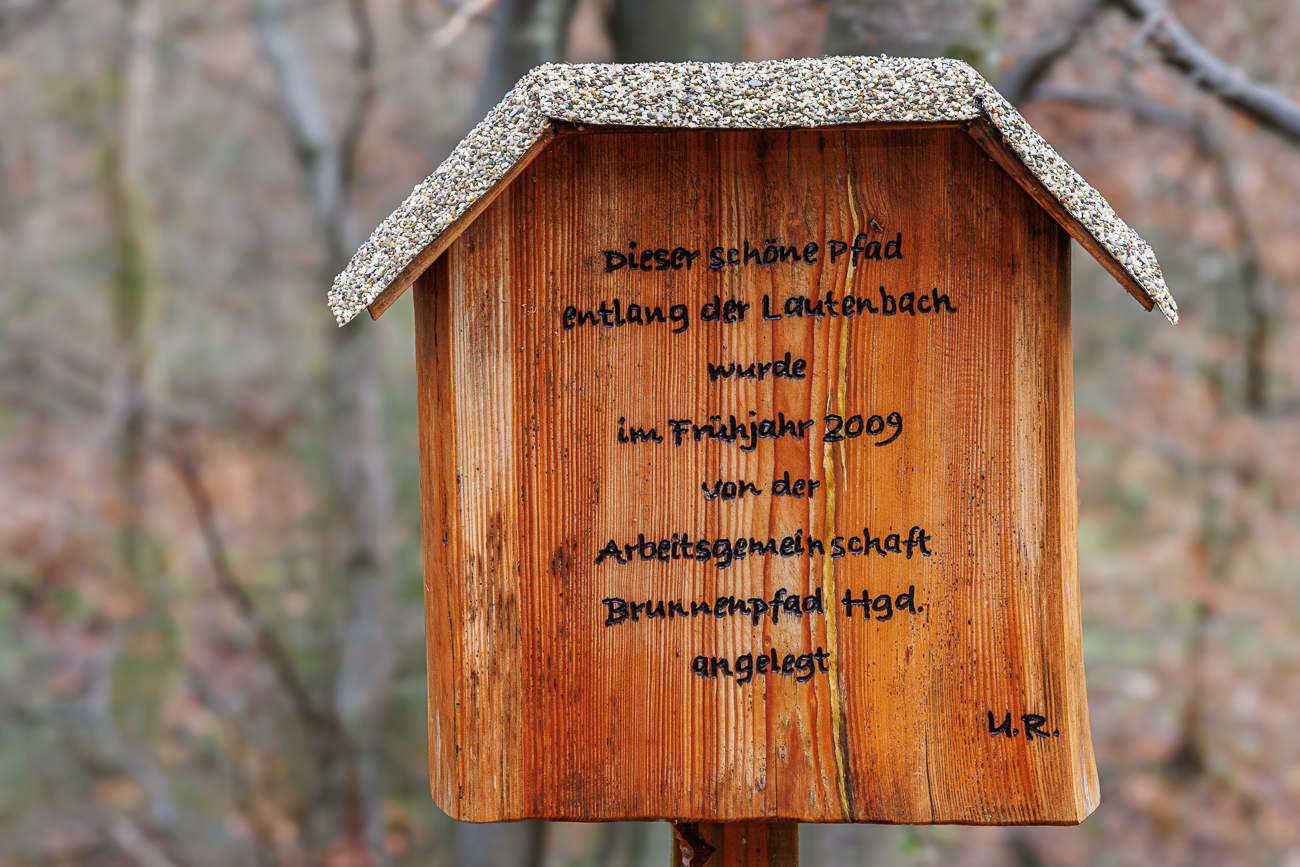 Dieser schöne Pfad
entlang der Lautenbach
wurde
im Frühjahr 2009
von der
Arbeitsgemeinschaft
Brunnenpfad Hgd.
angelegt
U.R.